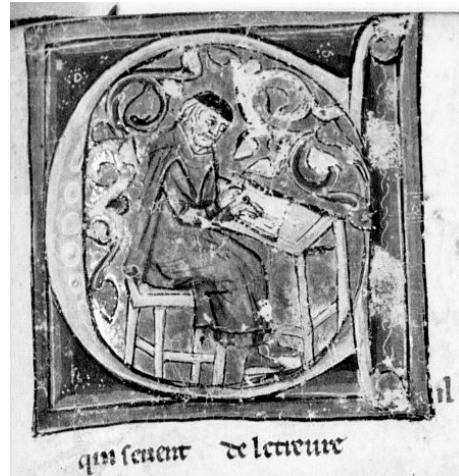 Cil
qui seuent de letreure